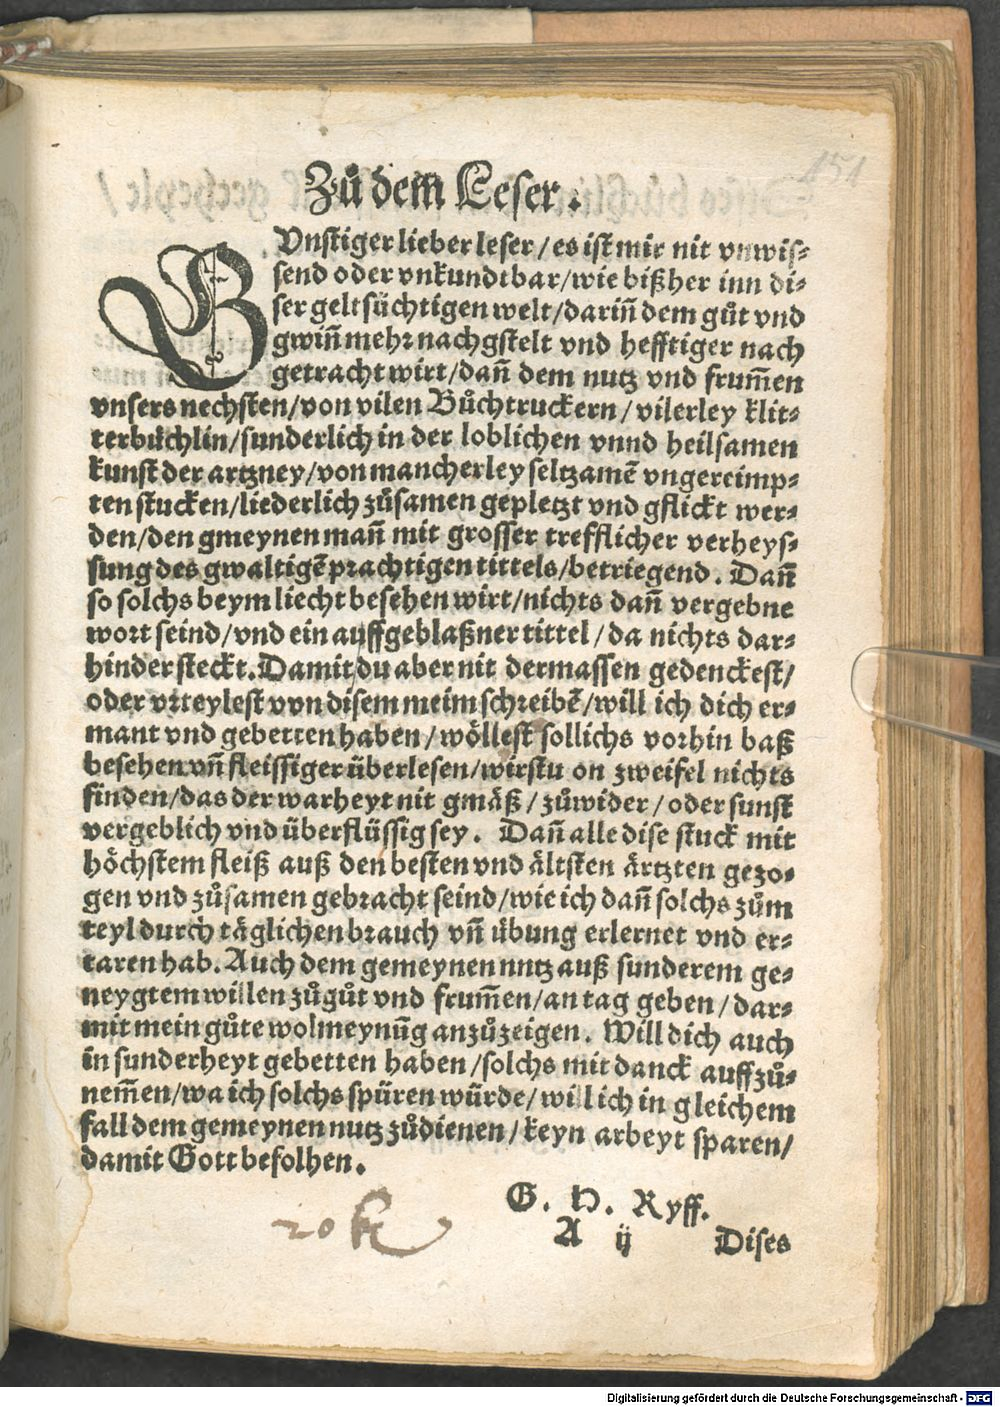 151
Zů dem Leser.
GVnstiger lieber leser / es ist mir nit vnwis⸗
send oder vnkundtbar / wie bißher inn di⸗
ser geltsüchtigen welt / darin̄ dem gůt vnd
gwin̄ mehr nachgstelt vnd hefftiger nach
getracht wirt / dan̄ dem nutz vnd frum̄en
vnsers nechsten / von vilen Bůchtruckern / vilerley klit⸗
terbüchlin / sunderlich in der loblichen vnnd heilsamen
kunst der artzney / von mancherley seltzamē vngereimp⸗
ten stucken / liederlich zůsamen gepletzt vnd gflickt wer⸗
den / den gmeynen man̄ mit grosser trefflicher verheys⸗
sung des gwaltigē prachtigen tittels / betriegend. Dan̄
so solchs beym liecht besehen wirt / nichts dan̄ vergebne
wort seind / vnd ein auffgeblaßner tittel / da nichts dar⸗
hinder steckt. Damit du aber nit dermassen gedenckest /
oder vrteylest von disem meim schreibē / will ich dich er⸗
mant vnd gebetten haben / wöllest sollichs vorhin baß
besehen vn̄ fleissiger überlesen / wirstu on zweifel nichts
finden / das der warheyt nit gmäß / zůwider / oder sunst
vergeblich vnd überflüssig sey. Dan̄ alle dise stuck mit
höchstem fleiß auß den besten vnd ältsten ärtzten gezo⸗
gen vnd zůsamen gebracht seind / wie ich dan̄ solchs zům
teyl durch täglichen brauch vn̄ übung erlernet vnd er⸗
faren hab. Auch dem gemeynen nutz auß sunderem ge⸗
neygtem willen zůgůt vnd frum̄en / an tag geben / dar⸗
mit mein gůte wolmeynūg anzůzeigen. Will dich auch
in sunderheyt gebetten haben / solchs mit danck auffzů⸗
nem̄en / wa ich solchs spüren würde / will ich in gleichem
fall dem gemeynen nutz zůdienen / keyn arbeyt sparen /
damit Gott befolhen.
G. H. Ryff.
A ij Dises
20
Digitalisierung gefördert durch die Deutsche Forschungsgemeinschaft - DFG